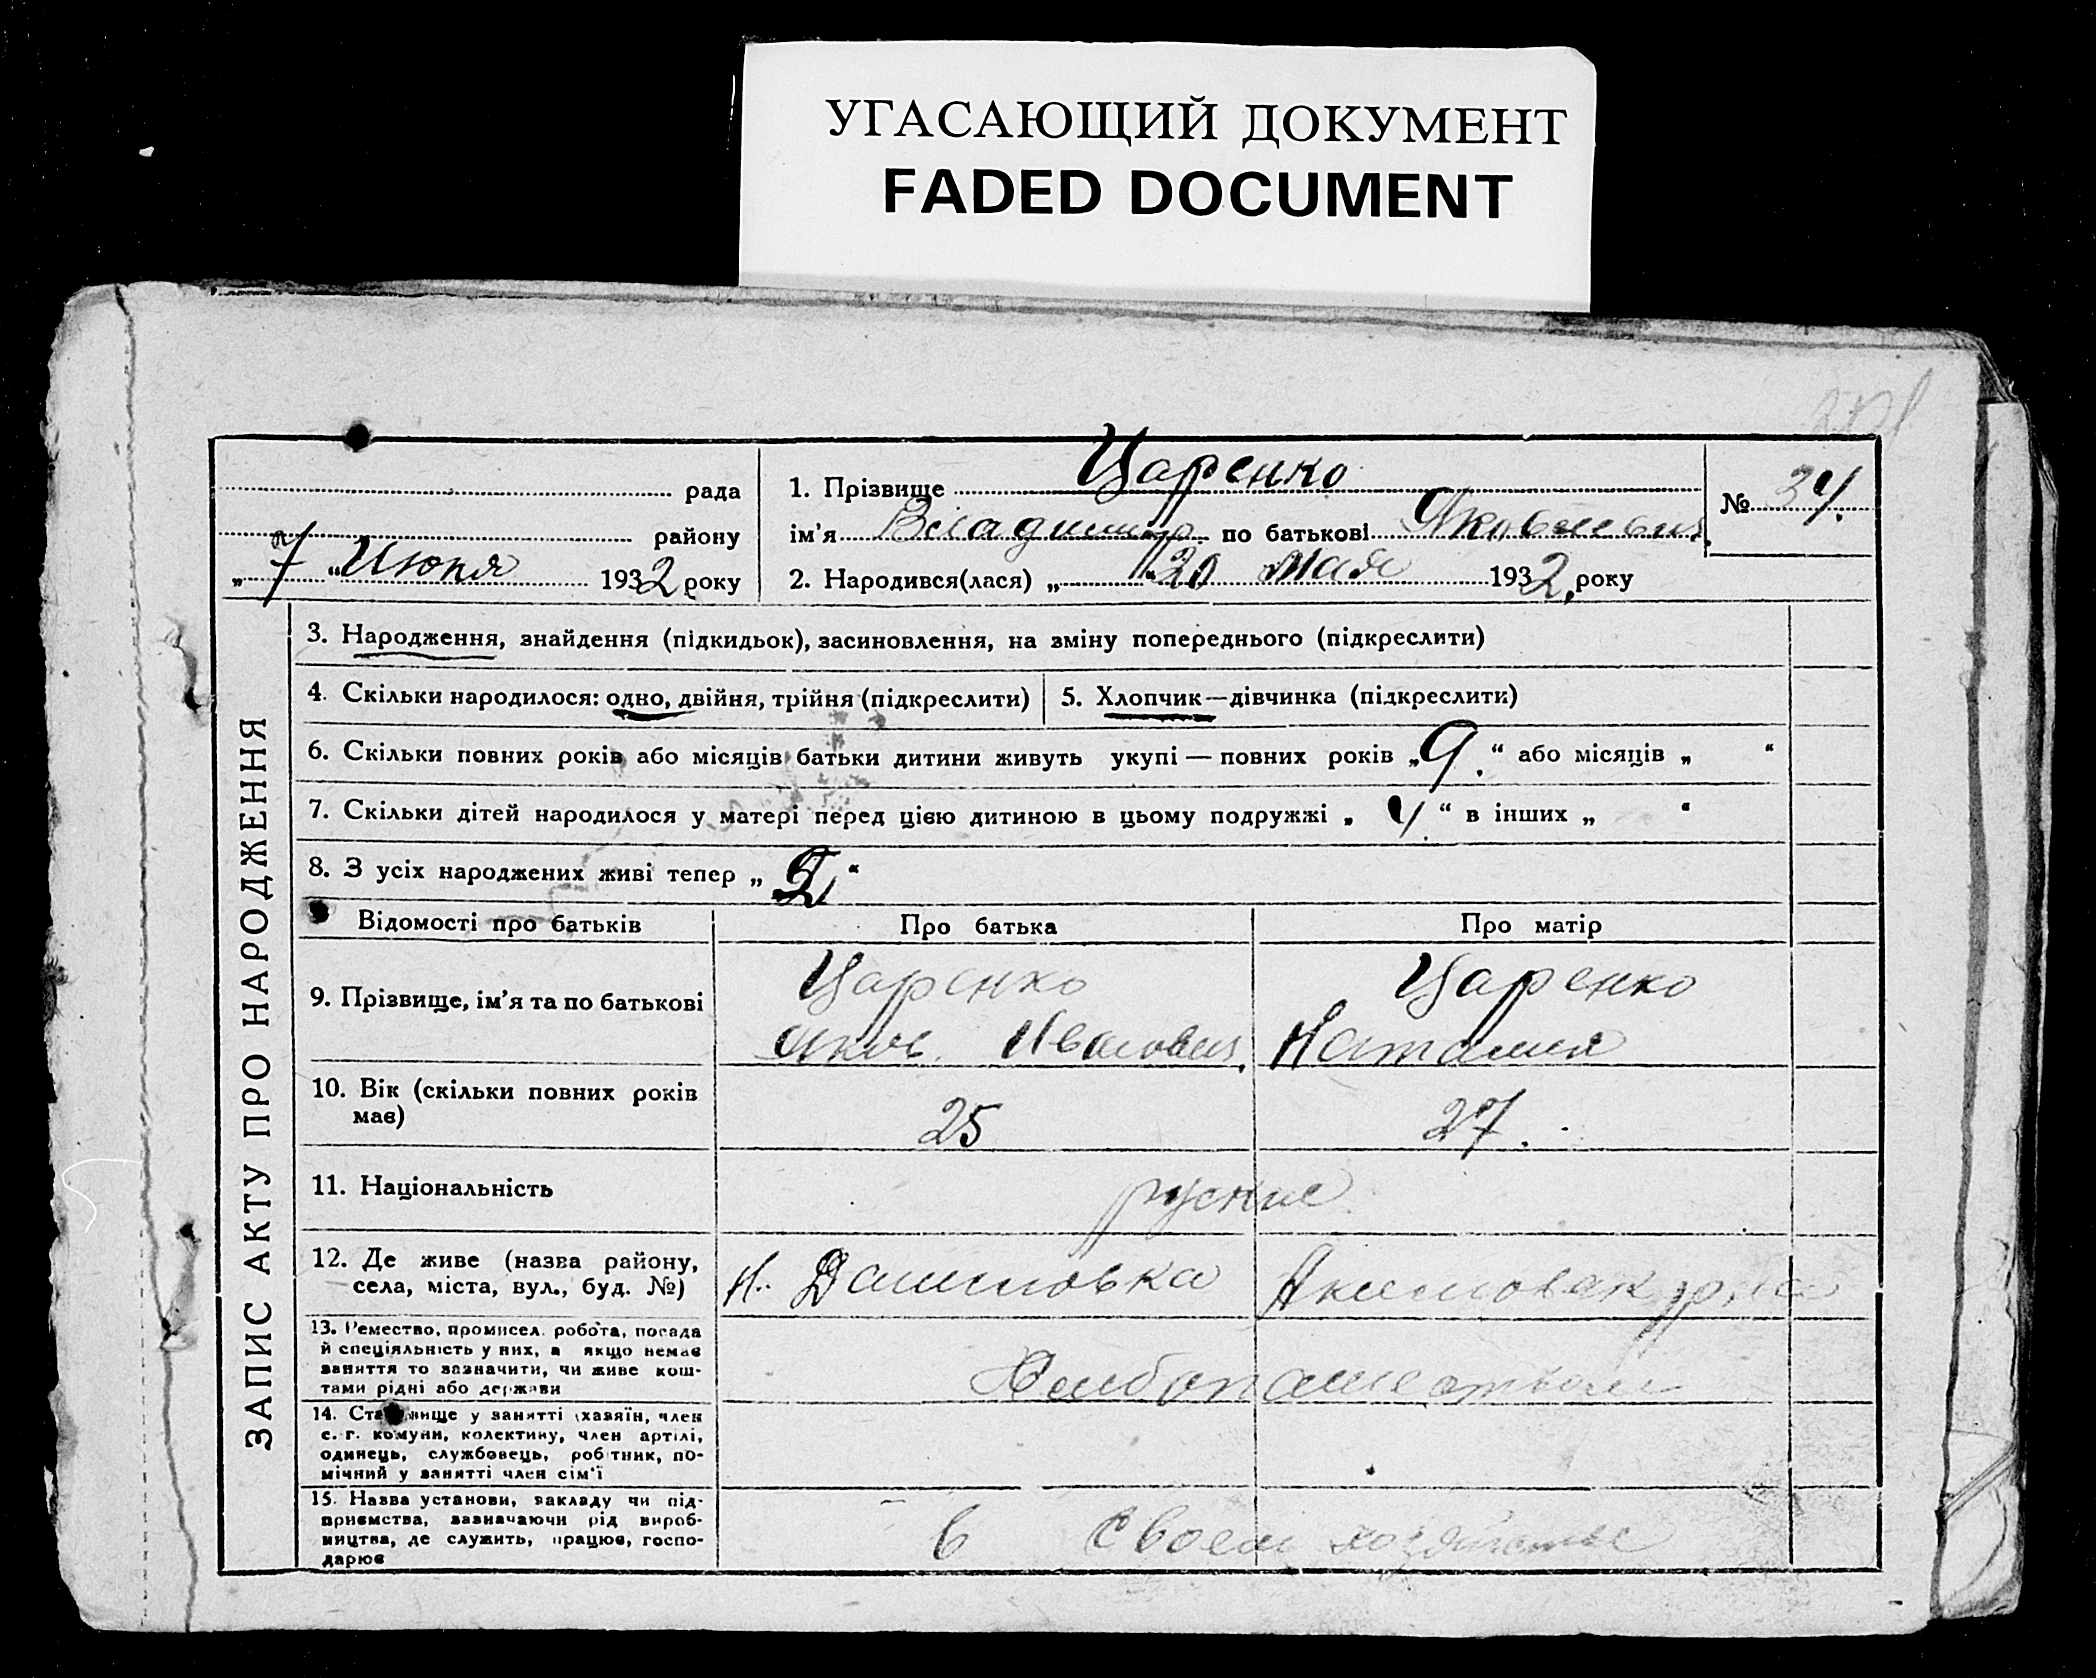 УГАСАЮЩИЙ ДОКУМЕНТ
FADED DOCUMENT
рада
району
„ 7 “ Июня 1932 року
1. Прізвище Царенко
ім’я Владимир по батькові Яковлевич.
2. Народився(лася) „ 20 мая 1932, року
№ 34.
ЗАПИС АКТУ ПРО НАРОДЖЕННЯ
3. Народження, знайдення (підкидьок), засиновлення, на зміну попереднього (підкреслити)
4. Скільки народилося: одно, двійня, трійня (підкреслити)
5. Хлопчик—дівчинка (підкреслити)
6. Скільки повних років або місяців батьки дитини живуть укупі — повних років „ 9. “ або місяців „ “
7. Скільки дітей народилося у матері перед цією дитиною в цьому подружжі „ 4 “ в інших „ “
8. З усіх народжених живі тепер „ “
Відомості про батьків
Про батька
Про матір
9. Прізвище, ім’я та по батькові
Царенко
Яков Иванович.
Царенко
Наталия
10. Вік (скільки повних років
має)
25
27.
11. Національність
руские
12. Де живе (назва району,
села, міста, вул., буд. №)
Н. Даниловка Акимовск р-на
13. Ремество, промисел, робота, посада
й спеціяльність у них, а якщо немає
заняття то зазначити, чи живе кош-
тами рідні або держави
Хлебопашеством
14. Становище у занятті (хазяїн, член
с.-г. комуни, колективу, член артілі,
одинець, службовець, робітник, по-
мічний у занятті член сім’ї
15. Назва установи, закладу чи під-
приємства, зазначаючи рід вироб-
ництва, де служить, працює, госпо-
дарює
в своем хозяйстве